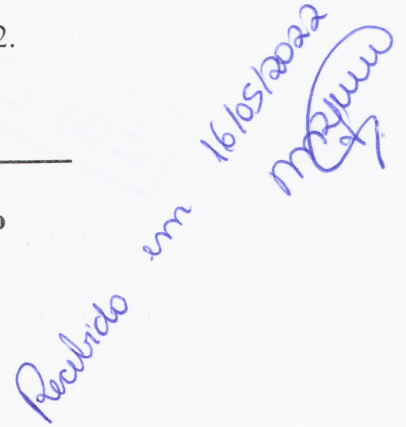 2.
Recebido em 16/05/2022